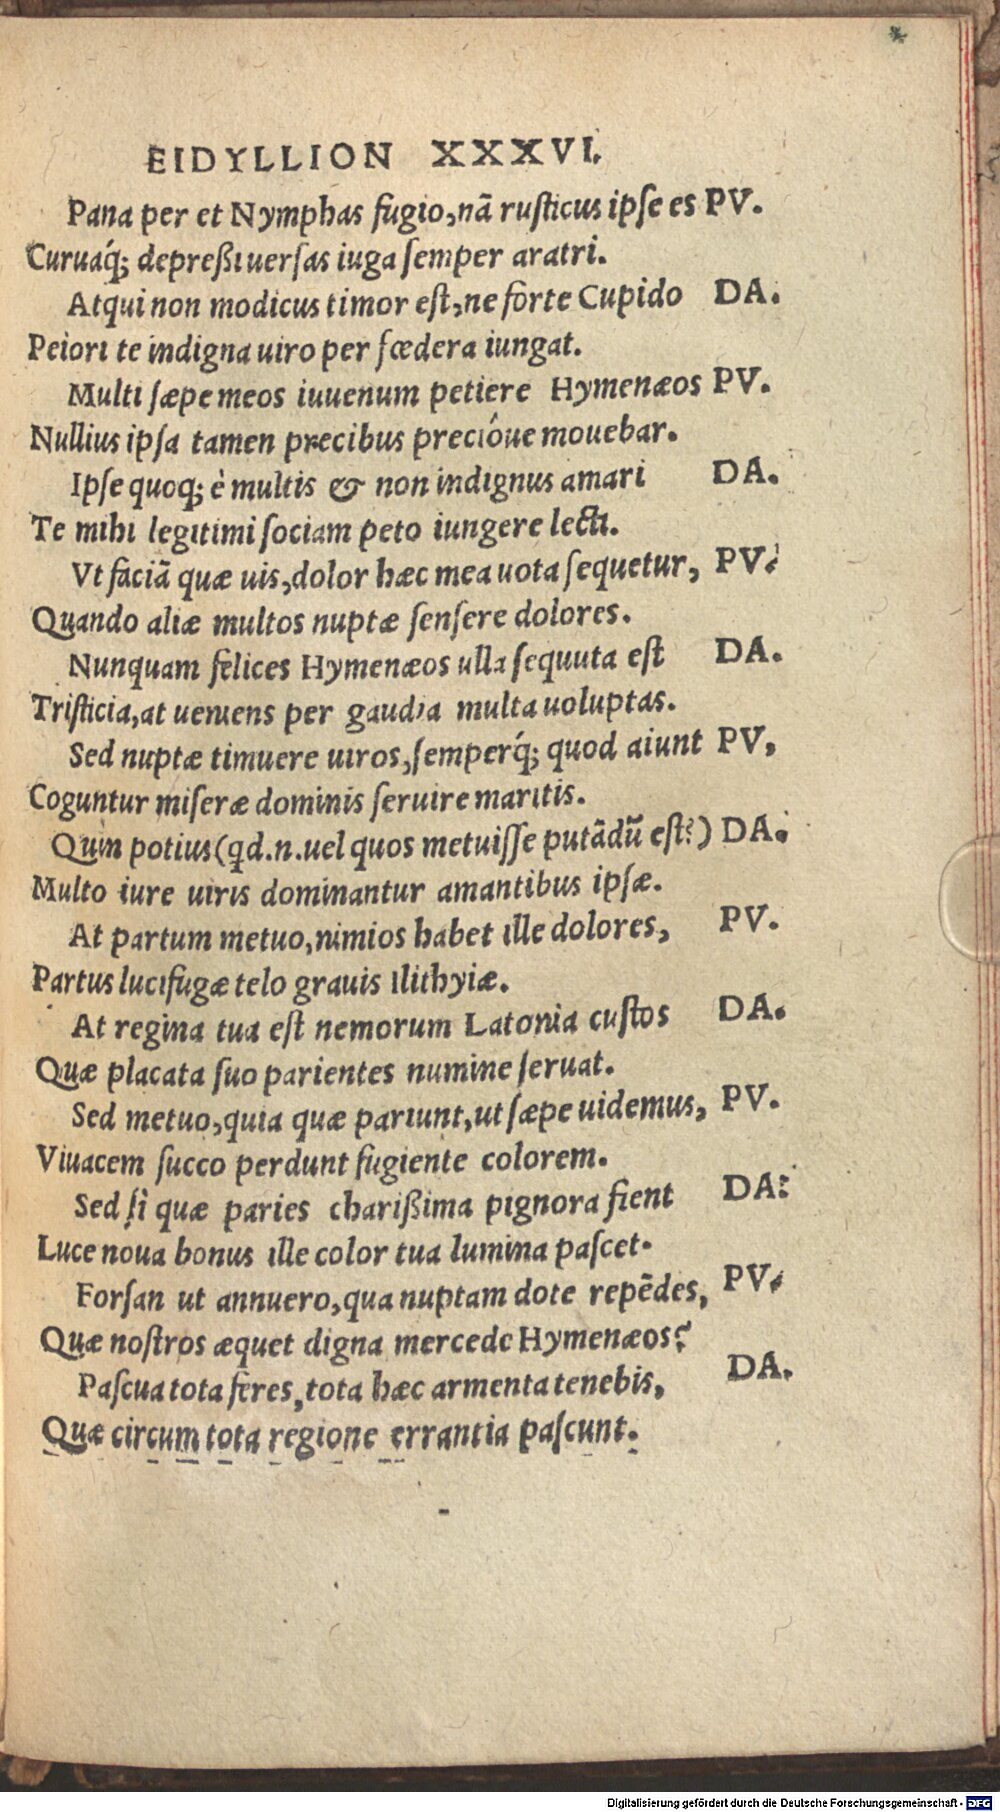 EIDYLLION XXXVI.
Pana per et Nymphas fugio, nã rusticus ipse es PV.
Curuaq́; depreßi uersas iuga semper aratri.
Atqui non modicus timor est, ne forte Cupido DA.
Peiori te indigna uiro per fœdera iungat.
Multi sæpe meos iuuenum petiere Hymenæos PV.
Nullius ipsa tamen precibus precióue mouebar.
Ipse quoq; è multis & non indignus amari DA.
Te mihi legitimi sociam peto iungere lecti.
Vt faciã quæ uis, dolor hæc mea uota sequetur, PV.
Quando aliæ multos nuptæ sensere dolores.
Nunquam felices Hymenæos ulla sequuta est DA.
Tristicia, at ueniens per gaudia multa uoluptas.
Sed nuptæ timuere uiros, semperq́; quod aiunt PV,
Coguntur miseræ dominis seruire maritis.
Quin potius (qd.n.uel quos metuisse putãdũ est?) DA.
Multo iure uiris dominantur amantibus ipsæ.
At partum metuo, nimios habet ille dolores, PV.
Partus lucifugæ telo grauis Ilithyiæ.
At regina tua est nemorum Latonia custos DA.
Quæ placata suo parientes numine seruat.
Sed metuo, quia quæ pariunt, ut sæpe uidemus, PV.
Viuacem succo perdunt fugiente colorem.
Sed si quæ paries charißima pignora fient DA:
Luce noua bonus ille color tua lumina pascet.
Forsan ut annuero, qua nuptam dote repẽdes, PV.
Quæ nostros æquet digna mercede Hymenæos?
Pascua tota feres, tota hæc armenta tenebis, DA.
Quæ circum tota regione errantia pascunt.
Digitalisierung gefördert durch die Deutsche Forschungsgemeinschaft - DFG